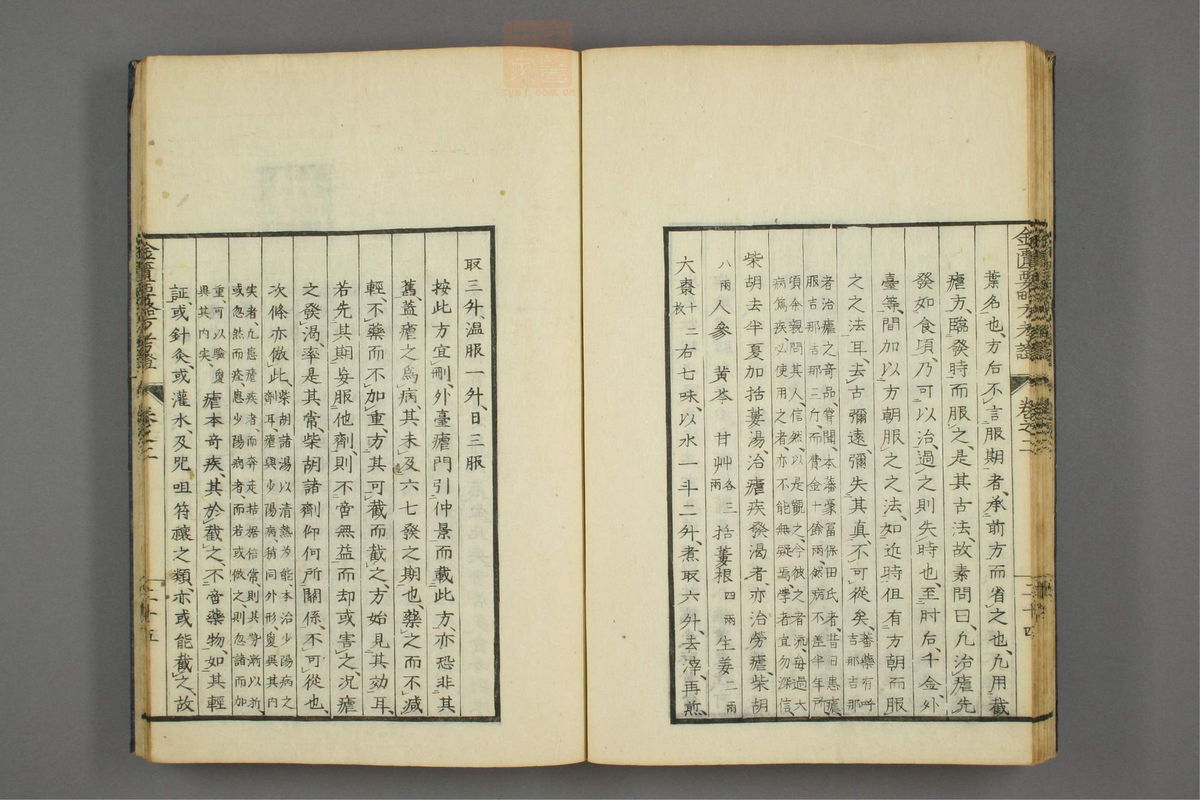 葉名也、方后不言服期者、承前方而省之也、凡用截
瘧方、臨發時而服之、是其古法、故素問曰、凡治瘧先
發如食頃、乃可以治、過之則失時也、至肘后、千金、外
臺等、間加以方朝服之之法、如近時徂有方朝而服
之之法耳、去古彌遠、彌失其真、不可從矣、蕃藥有呼吉那吉那
者、治瘧之奇品、嘗聞、本藩豪冨保田氏者、昔日患瘧、
服吉那吉那三斤、而費金十餘兩、然病不差半年所、
頃余親問其人、信然、以是觀之、今彼之者流、每過大
病篤疾、以使用之者、亦不能無疑焉、學者宜勿深信、
柴胡去半夏加括蔞湯、治瘧疾發渴者、亦治勞瘧柴胡
八兩人參　黃芩　甘艸各三兩括蔞根四兩生姜二兩
大棗十二枚右七味、以水一斗二升、煮取六升、去滓、再煎
金匱要略方考證
卷之二
二十四
取三升、温服一升、日三服
按此方宜刪、外臺瘧門引仲景而載此方、亦恐非其
舊、蓋瘧之爲病、其未及六七發之期也、藥之而不減
輕、不藥而不加重、方其可截而截之、方始見其効耳、
若先其期妄服他劑、則不啻無益而却或害之、况瘧
之發渴、率是其常、柴胡諸劑仰何所關係、不可從也、
次條亦倣此、柴胡諸湯以清熱為能、本治少陽病之
劑耳、瘧與少陽病、稍同外形、敻異其內
实者、凡患瘧疾者、而奔走拮据倍常、則其勢漸以折、
或忽然而痊、患少陽病者、而若或倣之、則忽諸而加
重、可以驗敻異其內实、瘧本奇疾、其於截之、不啻藥物、如其輕
証、或針灸、或灌水、及咒咀符禳之類、亦或能截之、故
金匱要略方考證
卷之二
二十五